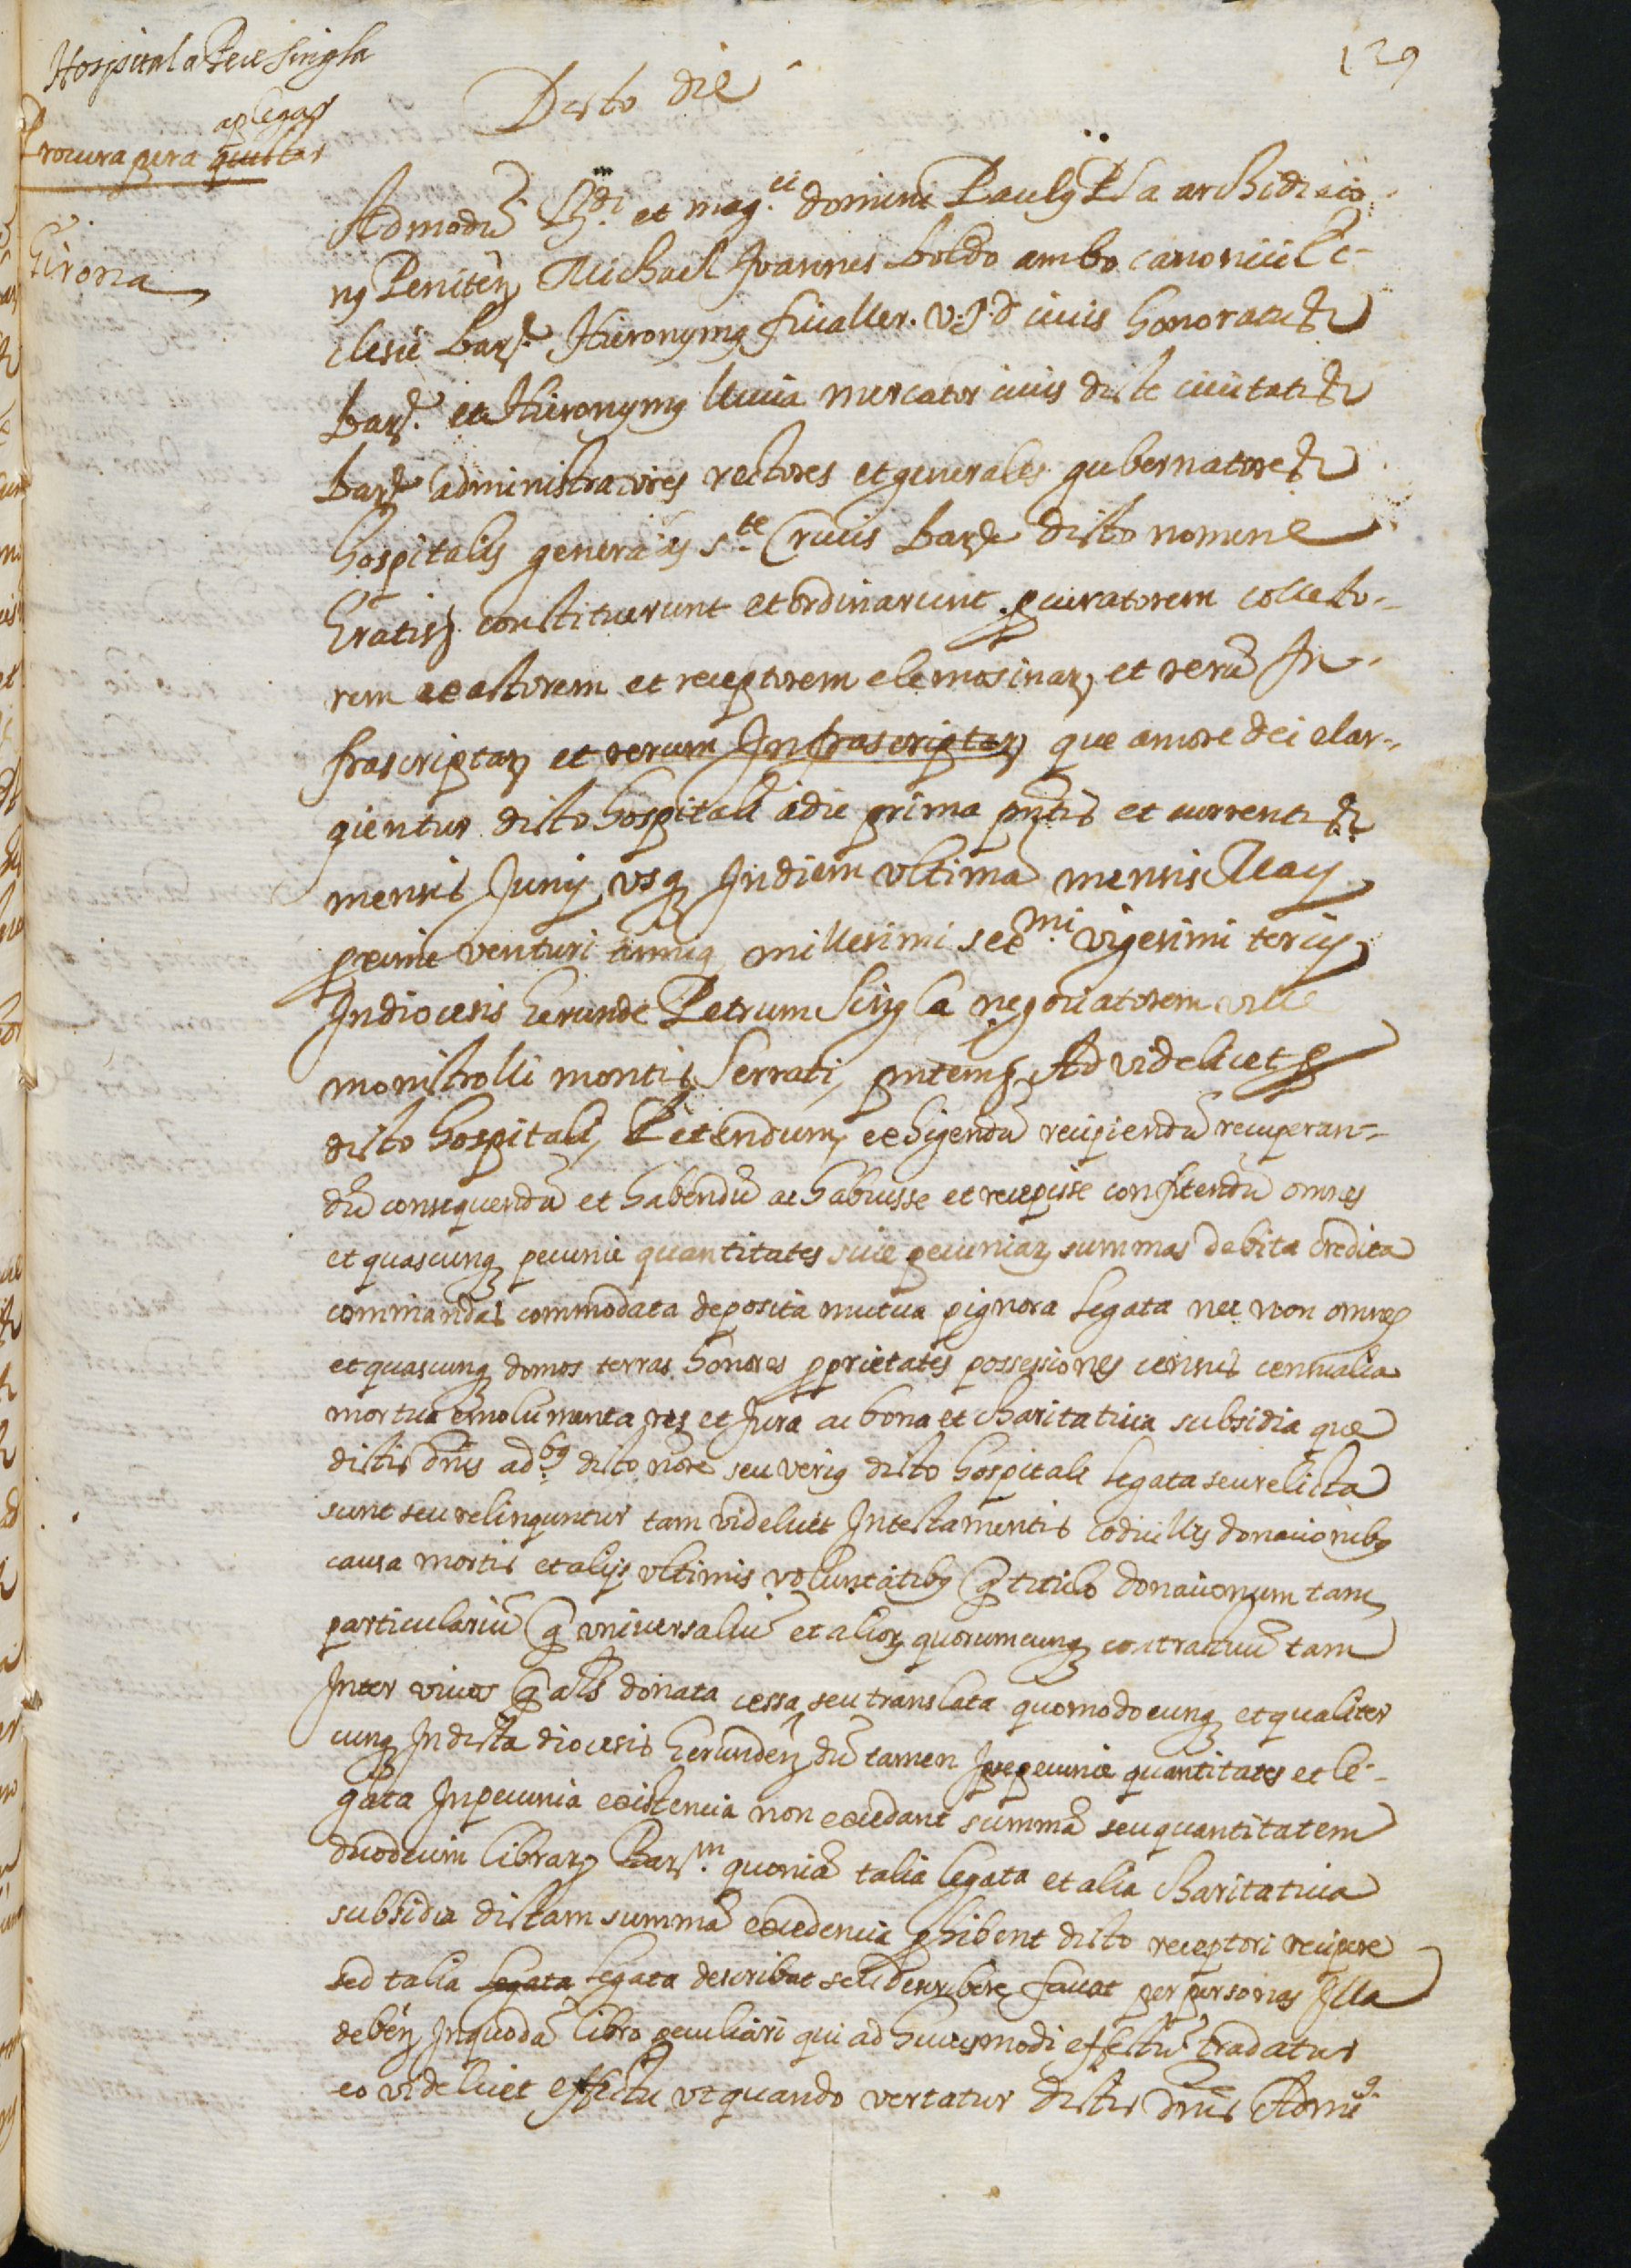 129
Hospital a Pere Singla
aplegar
Procura pera quistar
Girona
Dicto die
Admodũ Rdi et mag.ci domini Paulus Pla archidiaco-
nus Peniteñ Michael Joannes boldo ambo canonici Ec-
clesie barẽ Hieronymus fivaller. V.J.d civis honoratus
barẽ. et Hieronymus lluvia mercator civis dicte civitatis
barẽ administratores rectores et generales gubernatores
hospitalis generalis s.te Crucis barẽ dicto nomine
Gratis constituerunt et ordinarunt procuratorem collecto-
rem actorem et receptorem elemosinarũ et rerũ In-
frascriptarũ et rerum Infrascriptarũ que amore dei elar-
gientur dicto hospitali a die prima pñtis et currentis
mensis Junij usq Indiem ultimã mensis Maij
proxime venturi anniq millesimi sex.mi vigesimi tercij
In diocesis Gerunde Petrum Singla negociatorem ville
monistrolli montis Serrati, pñtem Ad videlicet pro
dicto hospitali, Petendum, exhigendũ recipiendũ recuperan-
dũ consequendũ et habendũ ac habuisse et recepisse confitendũ omnes
et quascunq pecunie quantitates sive pecuniarũ summas debita credita
commandas commodata deposita mutua pignora legata nec non omnes
et quascunq domos terras honores proprietates possessiones census censualia
mortua emolumenta res et Jura ac bona et charitativa subsidia que
dictis dñis ad.bus dicto noĩe seu verius dicto hospitali legata seu relicta
sunt seu relinquntur tam videlicet In testamentis codicillis donacionibus
causa mortis et alijs ultimis voluntatibus q̃ titulo donacionum tam
particulariũ q̃ universaliũ et aliorũ quorumcunq contractuũ tam
Inter vivos q̃ als donata cessa seu translata quomodocunq et qualiter
cunq In dicta diocesis Gerundeñ dũ tamen Ipse pecunie quantitates et le-
gata In pecunia existencia non excedant summã seu quantitatem
duodecim librarũ Barõ.m quoniã talia legata et alia charitativa
subsidia dictam summã excedencia prohibent dicto receptori recipere
sed talia legata legata describat seu describere faciat per personas Illa
debeñ In quodã libro peculiari qui ad huiusmodi effectũ tradatur
eo videlicet effectu ut quando vertatur dictis dñis Admi.s